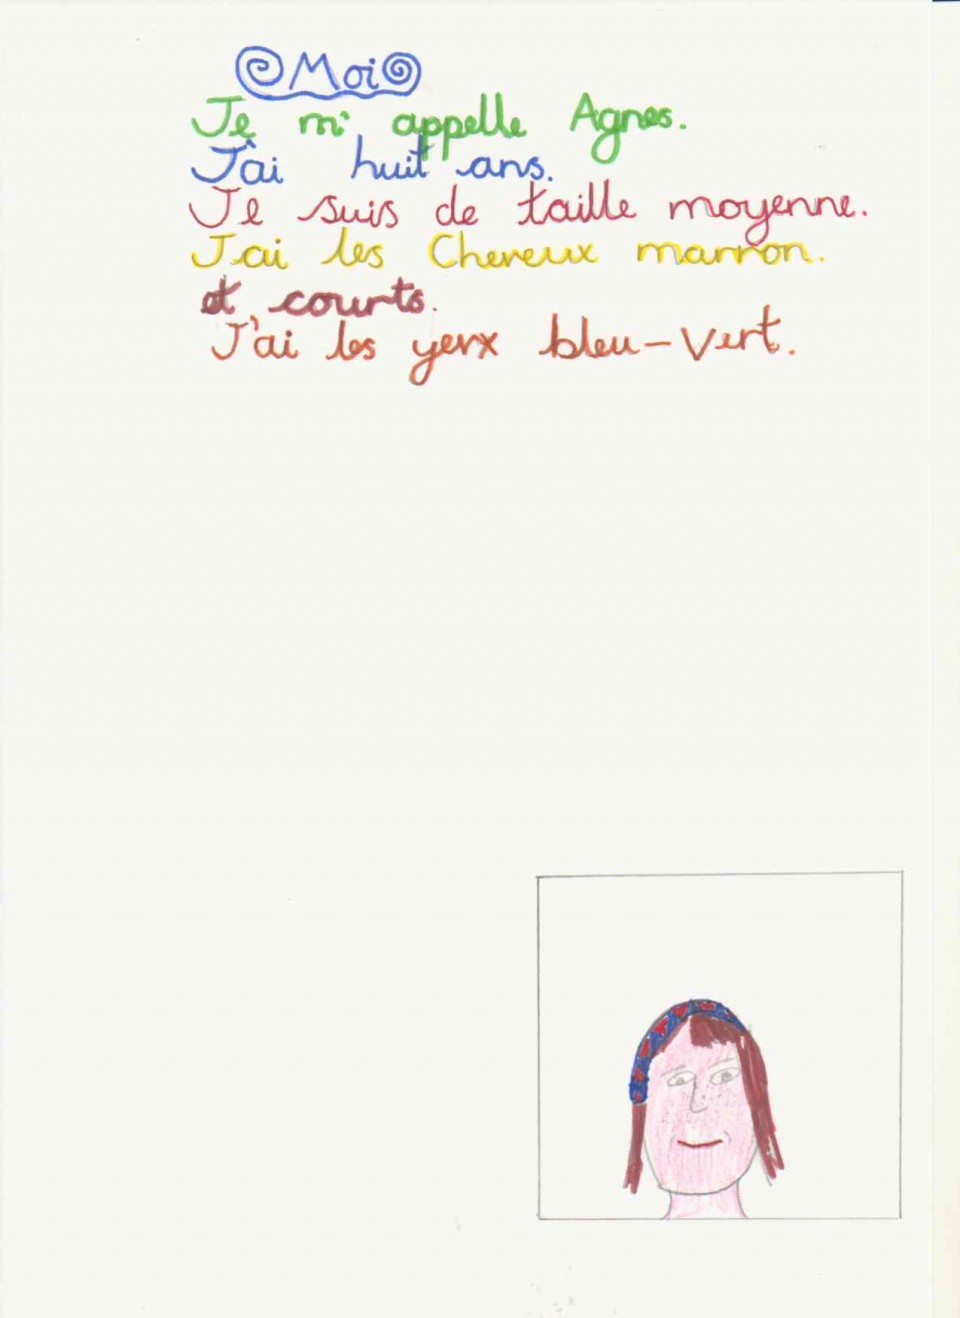 Moi
Je m' appelle Agnes.
J'ai huit ans.
Je suis de taille moyenne.
J'ai les Cheveux marron.
et courts.
J'ai les yeux bleu-vert.